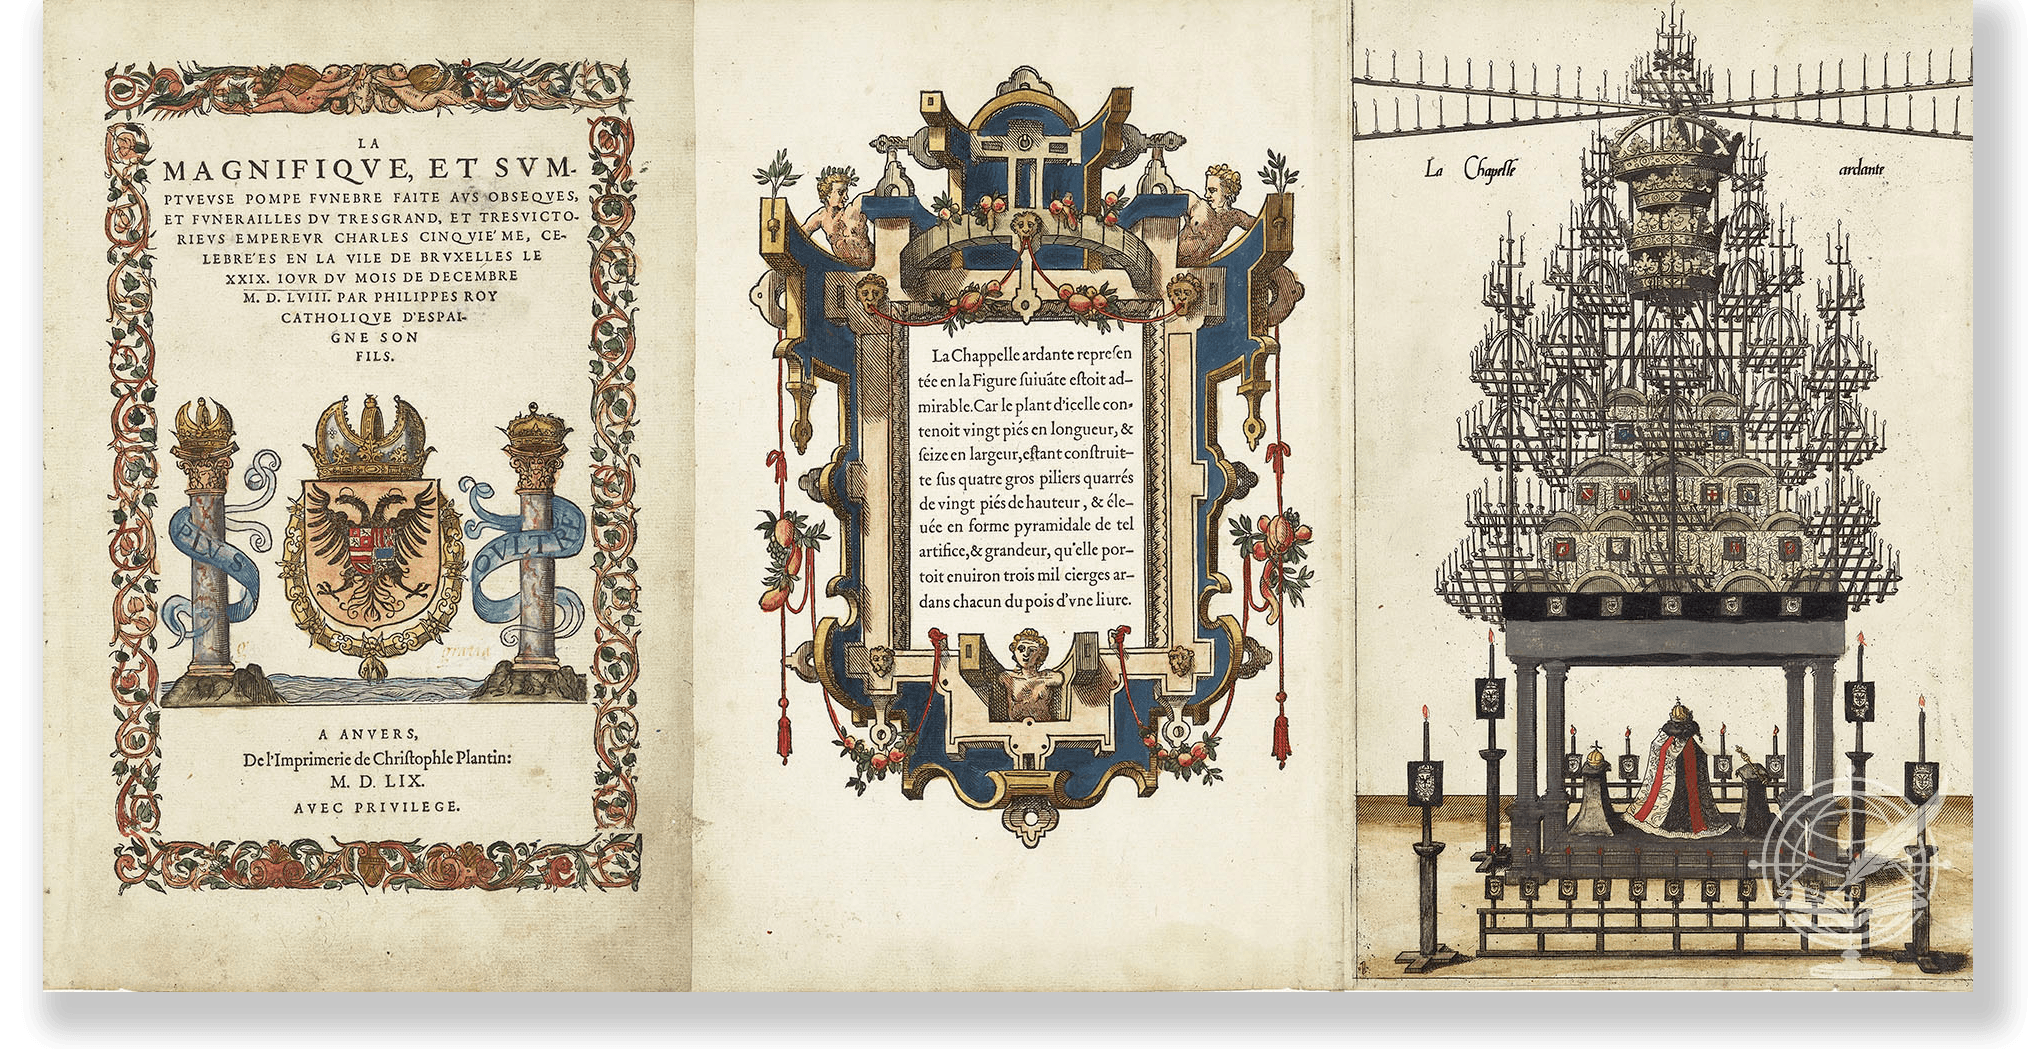 LA
MAGNIFIQVE, ET SVM-
PTVEVSE POMPE FVNEBRE FAITE AVS OBSEQVES,
ET FVNERAILLES DV TRESGRAND, ET TRESVICTO-
RIEVS EMPEREVR CHARLES CINQVIE'ME, CE-
LEBRE'ES EN LA VILE DE BRVXELLES LE
XXIX. IOVR DV MOIS DE DECEMBRE
M. D. LVIII. PAR PHILIPPES ROY
CATHOLIQVE D'ESPAI-
GNE SON
FILS.
PLVS
OVLTRE
gratia
A ANVERS,
De l'Imprimerie de Chriſtophle Plantin:
M. D. LIX.
AVEC PRIVILEGE.
La Chappelle ardante repreſen
tée en la Figure ſuiuãte eſtoit ad-
mirable. Car le plant d'icelle con-
tenoit vingt piés en longueur, &
ſeize en largeur, eſtant conſtruit-
te ſus quatre gros piliers quarrés
de vingt piés de hauteur, & éle-
uée en forme pyramidale de tel
artifice, & grandeur, qu'elle por-
toit enuiron trois mil cierges ar-
dans chacun du pois d'vne liure.
La Chapelle ardante